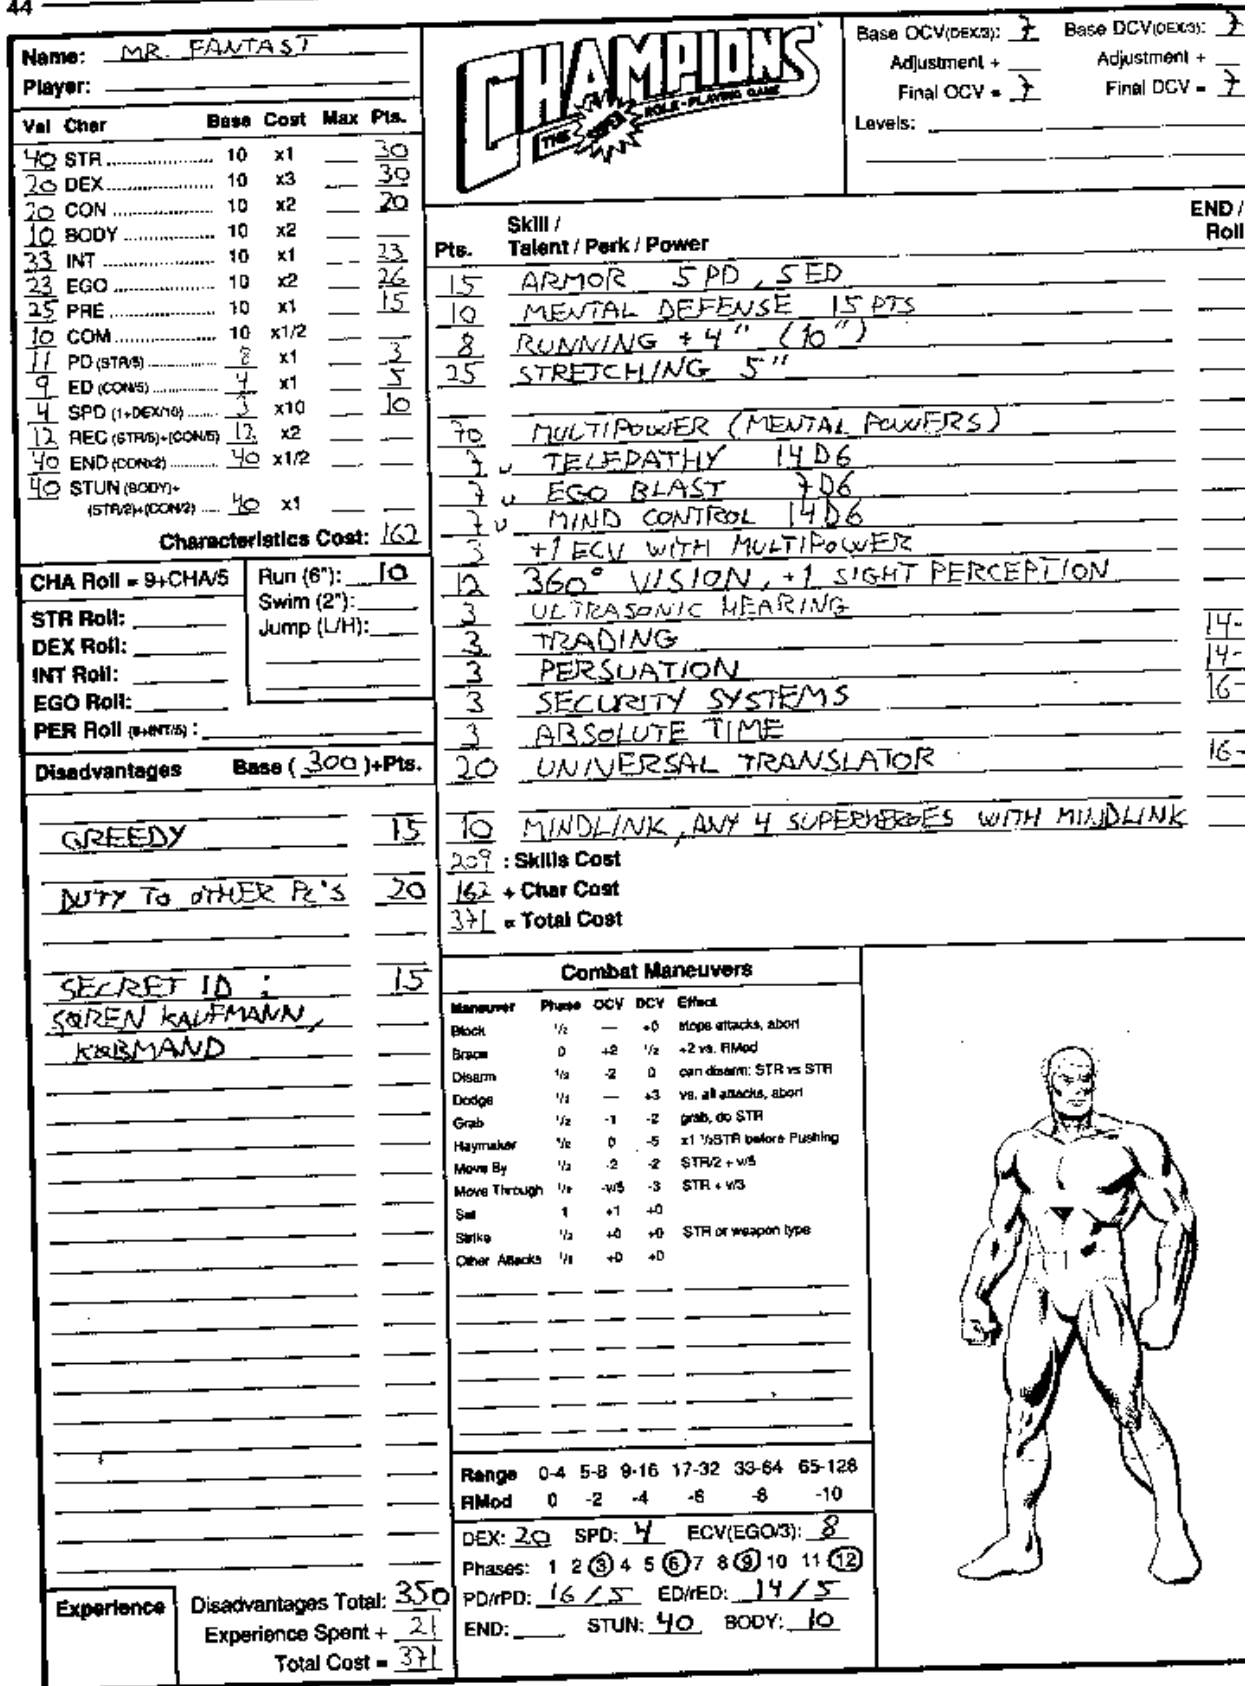 44
Name: MR. FANTAST
Player:
Val Char Base Cost Max Pts.
40 STR 10 x1 30
20 DEX 10 x3 30
20 CON 10 x2 20
10 BODY 10 x2
33 INT 10 x1 23
23 EGO 10 x2 26
25 PRE 10 x1 15
10 COM 10 x1/2
11 PD (STR/5) 8 x1 3
9 ED (CON/5) 4 x1 5
4 SPD (1+DEX/10) 3 x10 10
12 REC (STR/5)+(CON/5) 12 x2
40 END (CONx2) 40 x1/2
40 STUN (BODY)+
(STR/2)+(CON/2) 40 x1
Characteristics Cost: 162
CHA Roll = 9+CHA/5
STR Roll:
DEX Roll:
INT Roll:
EGO Roll:
PER Roll (9+INT/5) :
Run (6"): 10
Swim (2"):
Jump (L/H):
Disadvantages Base ( 300 )+Pts.
GREEDY 15
DUTY TO OTHER PC'S 20
SECRET ID : 15
SØREN KAUFMANN,
KØBMAND
Experience
Disadvantages Total: 350
Experience Spent + 21
Total Cost = 371
CHAMPIONS
THE SUPER ROLE-PLAYING GAME
Base OCV(DEX/3): 7 Base DCV(DEX/3): 7
Adjustment + Adjustment +
Final OCV = 7 Final DCV = 7
Levels:
Skill / END /
Pts. Talent / Perk / Power Roll
15 ARMOR 5 PD, 5 ED
10 MENTAL DEFENSE 15 PTS
8 RUNNING +4" (10")
25 STRETCHING 5"
70 MULTIPOWER (MENTAL POWERS)
7 u TELEPATHY 14D6
7 u EGO BLAST 7D6
7 u MIND CONTROL 14D6
3 +1 ECV WITH MULTIPOWER
12 360° VISION, +1 SIGHT PERCEPTION
3 ULTRASONIC HEARING
3 TRADING 14-
3 PERSUATION 14-
3 SECURITY SYSTEMS 16-
3 ABSOLUTE TIME
20 UNIVERSAL TRANSLATOR 16-
10 MINDLINK, ANY 4 SUPERHEROES WITH MINDLINK
209 : Skills Cost
162 + Char Cost
371 = Total Cost
Combat Maneuvers
Maneuver Phase OCV DCV Effect
Block 1/2 — +0 stops attacks, abort
Brace 0 +2 1/2 +2 vs. RMod
Disarm 1/2 -2 0 can disarm: STR vs STR
Dodge 1/2 — +3 vs. all attacks, abort
Grab 1/2 -1 -2 grab, do STR
Haymaker 1/2 0 -5 x1 1/2STR before Pushing
Move By 1/2 -2 -2 STR/2 + v/5
Move Through 1/2 -v/5 -3 STR + v/3
Set 1 +1 +0
Strike 1/2 +0 +0 STR or weapon type
Other Attacks 1/2 +0 +0
Range 0-4 5-8 9-16 17-32 33-64 65-128
RMod 0 -2 -4 -6 -8 -10
DEX: 20 SPD: 4 ECV(EGO/3): 8
Phases: 1 2 3 4 5 6 7 8 9 10 11 12
PD/rPD: 16 / 5 ED/rED: 14 / 5
END: STUN: 40 BODY: 10